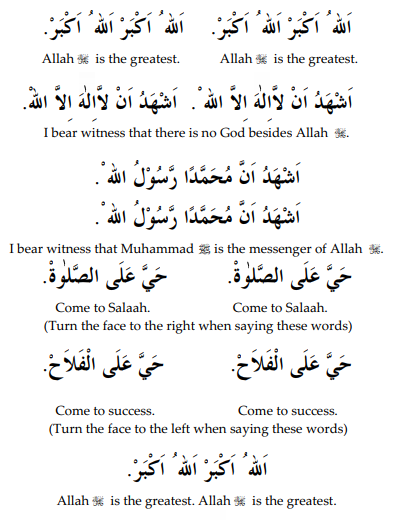 اَللهُ اَكْبَرْ اَللهُ اَكْبَرْ. اَللهُ اَكْبَرْ اَللهُ اَكْبَرْ.
Allah ﷻ is the greatest. Allah ﷻ is the greatest.
اَشْهَدُ اَنْ لَّااِلٰهَ اِلاَّ اللهْ. اَشْهَدُ اَنْ لَّااِلٰهَ اِلاَّ اللهْ.
I bear witness that there is no God besides Allah ﷻ.
اَشْهَدُ اَنَّ مُحَمَّدًا رَّسُوْلُ اللهْ.
اَشْهَدُ اَنَّ مُحَمَّدًا رَّسُوْلُ اللهْ.
I bear witness that Muhammad ﷺ is the messenger of Allah ﷻ.
حَيَّ عَلَى الصَّلٰوةْ. حَيَّ عَلَى الصَّلٰوةْ.
Come to Salaah. Come to Salaah.
(Turn the face to the right when saying these words)
حَيَّ عَلَى الْفَلَاَحْ. حَيَّ عَلَى الْفَلَاَحْ.
Come to success. Come to success.
(Turn the face to the left when saying these words)
اَللهُ اَكْبَرْ اَللهُ اَكْبَرْ.
Allah ﷻ is the greatest. Allah ﷻ is the greatest.